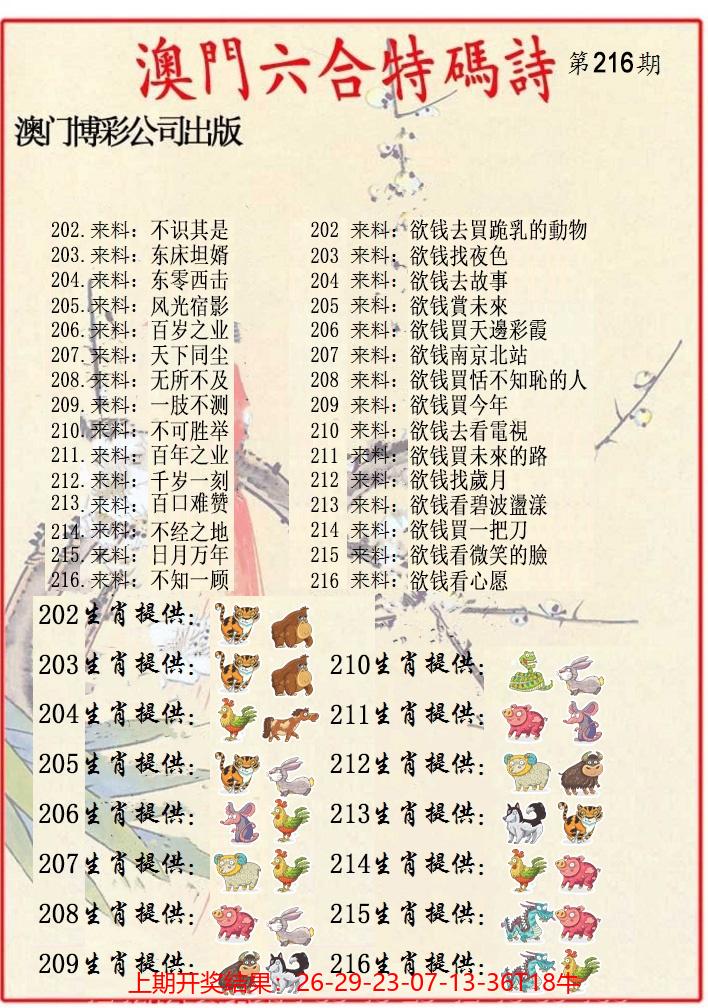 澳門六合特碼詩 第216期
澳门博彩公司出版
202.来料：不识其是
203.来料：东床坦婿
204.来料：东零西击
205.来料：风光宿影
206.来料：百岁之业
207.来料：天下同尘
208.来料：无所不及
209.来料：一肢不测
210.来料：不可胜举
211.来料：百年之业
212.来料：千岁一刻
213.来料：百口难赞
214.来料：不经之地
215.来料：日月万年
216.来料：不知一顾
202 来料：欲钱去買跪乳的動物
203 来料：欲钱找夜色
204 来料：欲钱去故事
205 来料：欲钱賞未來
206 来料：欲钱買天邊彩霞
207 来料：欲钱南京北站
208 来料：欲钱買恬不知恥的人
209 来料：欲钱買今年
210 来料：欲钱去看電視
211 来料：欲钱買未來的路
212 来料：欲钱找歲月
213 来料：欲钱看碧波盪漾
214 来料：欲钱買一把刀
215 来料：欲钱看微笑的臉
216 来料：欲钱看心愿
202生肖提供：
203生肖提供：
204生肖提供：
205生肖提供：
206生肖提供：
207生肖提供：
208生肖提供：
209生肖提供：
210生肖提供：
211生肖提供：
212生肖提供：
213生肖提供：
214生肖提供：
215生肖提供：
216生肖提供：
上期开奖结果：26-29-23-07-13-36T18牛